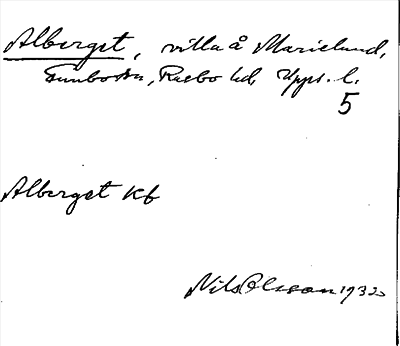 Alberget, villa å Marielund,
Gunbo... Rasbo hd, Upps. l.
5
Alberget Kb
Nils Olsson 1932